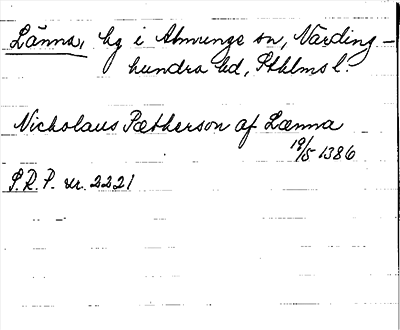 Länna, by i Almunge sn, Närding-
hundra hd, Sthlms l.
Nicholaus Pætherson af Lænna
19/5 1386
S.R.P. nr. 2221